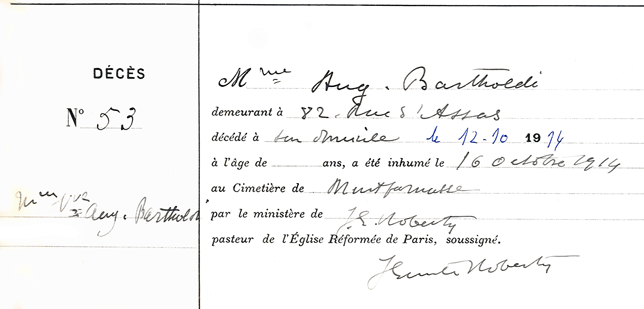 DÉCÈS
N° 53
Mme Vve Aug. Bartholdi
Mme Aug. Bartholdi
demeurant à 82. Rue d'Assas
décédé à son domicile le 12-10 1914
à l'âge de ans, a été inhumé le 16 Octobre 1914
au Cimetière de Montparnasse
par le ministère de J. E. Roberty
pasteur de l'Église Réformée de Paris, soussigné.
J Emile Roberty